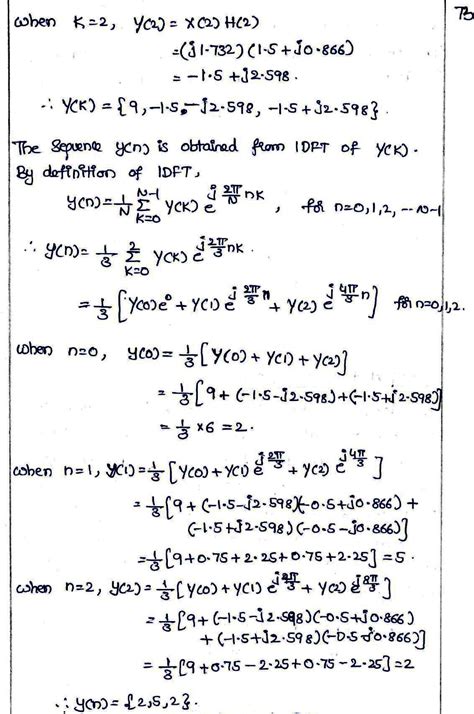 73
when K=2, Y(2) = X(2) H(2)
= (j1.732) (1.5 + j0.866)
= -1.5 + j2.598.
∴ Y(K) = {9, -1.5, -j2.598, -1.5 + j2.598}.
The Sequence y(n) is obtained from IDFT of Y(K).
By definition of IDFT,
y(n) = 1/N Σ_{K=0}^{N-1} Y(K) e^{j 2π/N nK}, for n=0,1,2, --- N-1
∴ y(n) = 1/3 Σ_{K=0}^{2} Y(K) e^{j 2π/3 nK}.
= 1/3 [Y(0)e^0 + Y(1) e^{j 2π/3 n} + Y(2) e^{j 4π/3 n}] for n=0,1,2.
when n=0, y(0) = 1/3 [Y(0) + Y(1) + Y(2)]
= 1/3 [9 + (-1.5 - j2.598) + (-1.5 + j2.598)]
= 1/3 × 6 = 2.
when n=1, y(1) = 1/3 [Y(0) + Y(1) e^{j 2π/3} + Y(2) e^{j 4π/3}]
= 1/3 [9 + (-1.5 - j2.598)(-0.5 + j0.866) +
(-1.5 + j2.598)(-0.5 - j0.866)]
= 1/3 [9 + 0.75 + 2.25 + 0.75 + 2.25] = 5.
when n=2, y(2) = 1/3 [Y(0) + Y(1) e^{j 4π/3} + Y(2) e^{j 8π/3}]
= 1/3 [9 + (-1.5 - j2.598)(-0.5 + j0.866)
+ (-1.5 + j2.598)(-0.5 - j0.866)]
= 1/3 [9 + 0.75 - 2.25 + 0.75 - 2.25] = 2
∴ y(n) = {2, 5, 2}.